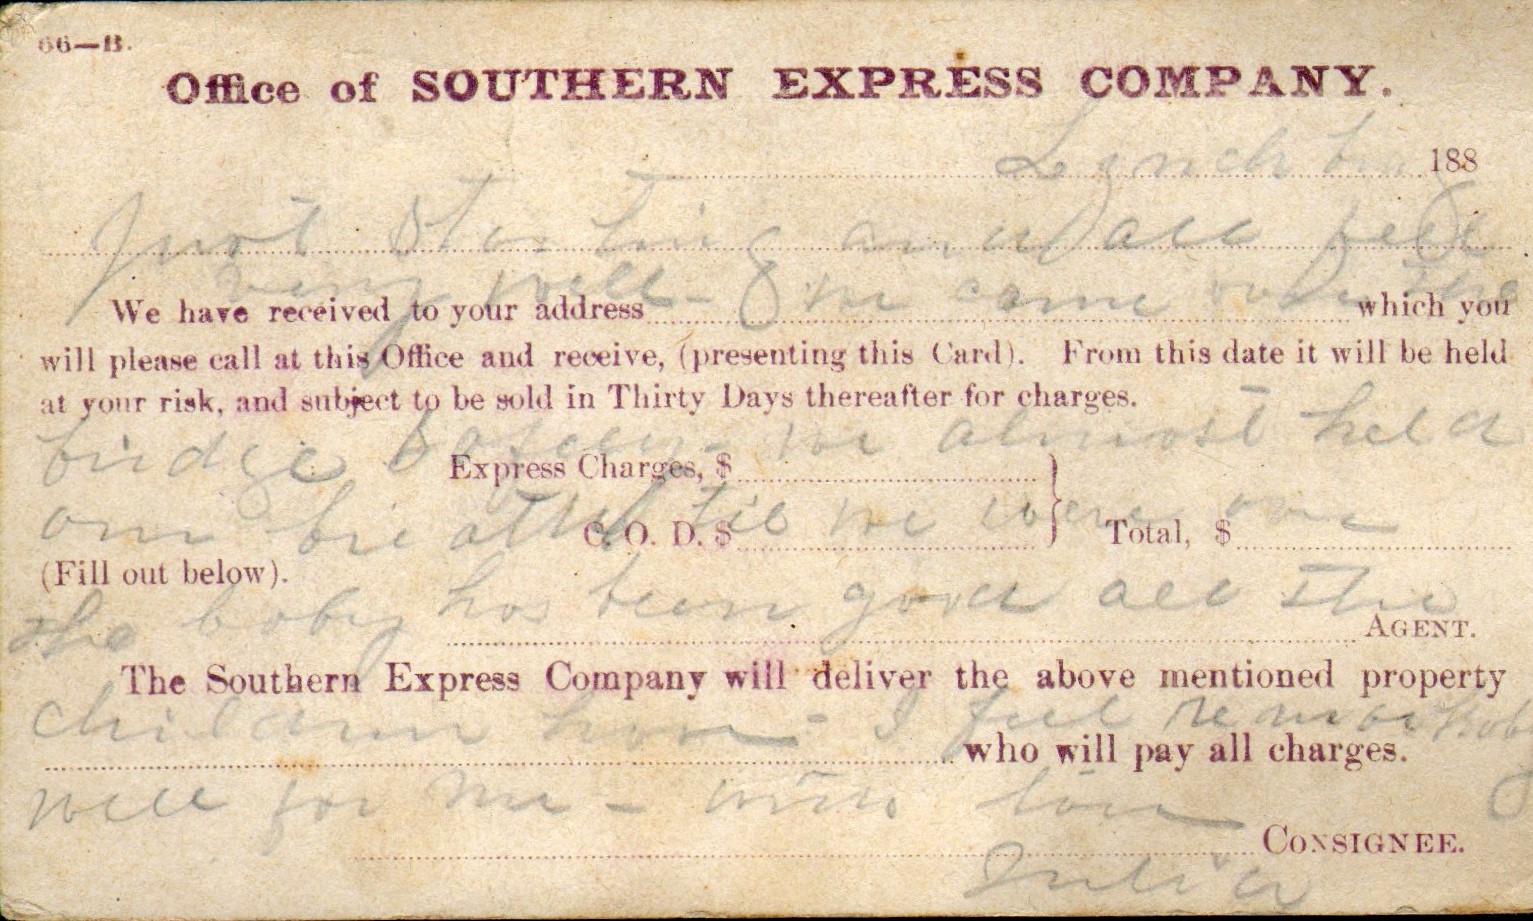 66—B.
Office of SOUTHERN EXPRESS COMPANY.
Lynchburg 188
Just starting and all feel
very well - we came over the
We have received to your address which you
will please call at this Office and receive, (presenting this Card). From this date it will be held
at your risk, and subject to be sold in Thirty Days thereafter for charges.
bridge safely - we almost held
Express Charges, $
our breath til we were over
C. O. D. $ Total, $
(Fill out below).
the baby has been good all the
AGENT.
The Southern Express Company will deliver the above mentioned property
children have - I feel remarkably
who will pay all charges.
well for me - with love
CONSIGNEE.
Julia